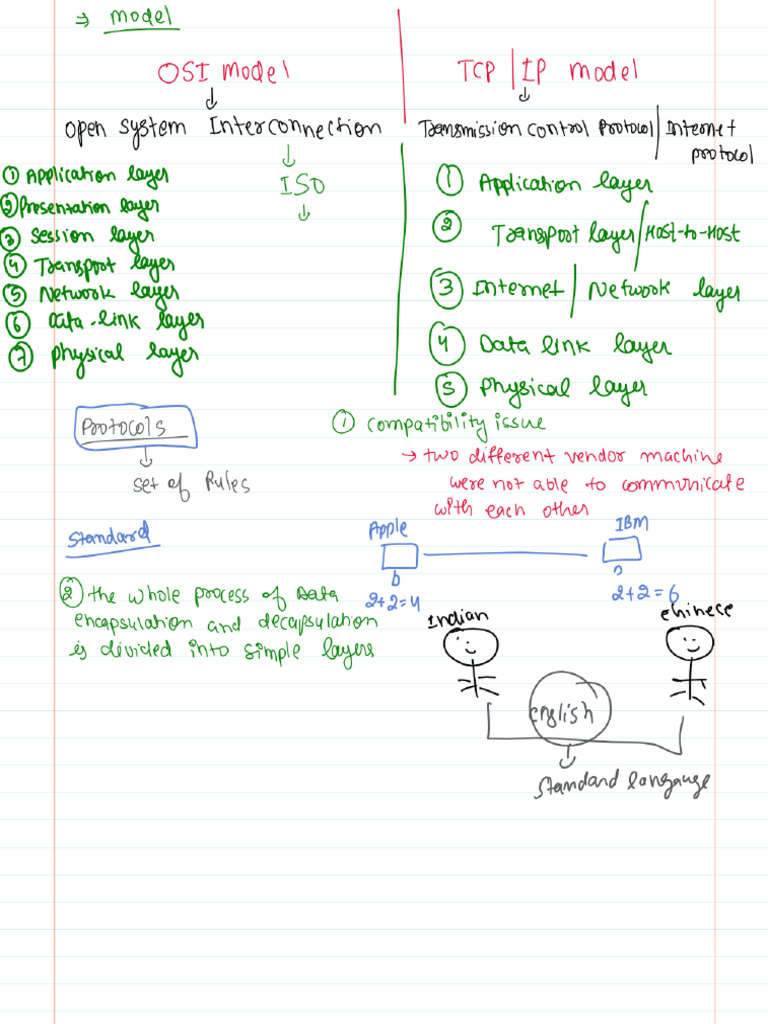 ⇒ Model
OSI Model
Open System Interconnection
ISO
① Application layer
② Presentation layer
③ Session layer
④ Transport layer
⑤ Network layer
⑥ Data-link layer
⑦ Physical layer
TCP/IP Model
Transmission Control Protocol/Internet
Protocol
① Application layer
② Transport layer/Host-to-Host
③ Internet/Network layer
④ Data link layer
⑤ Physical layer
Protocols
set of Rules
Standard
① Compatibility issue
→ two different vendor machine
were not able to communicate
with each other
Apple
IBM
2+2=4
2+2=6
② the whole process of Data
encapsulation and decapsulation
is divided into simple layers
Indian
Chinece
english
Standard langauge